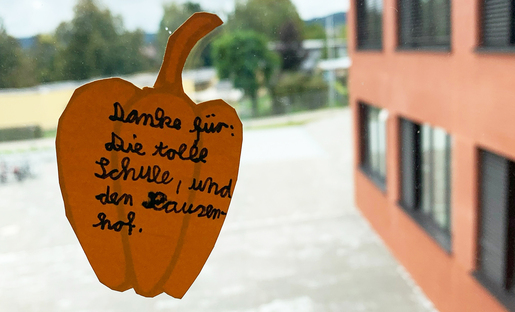 Danke für:
Die tolle
Schule, und
den Pausen-
hof.